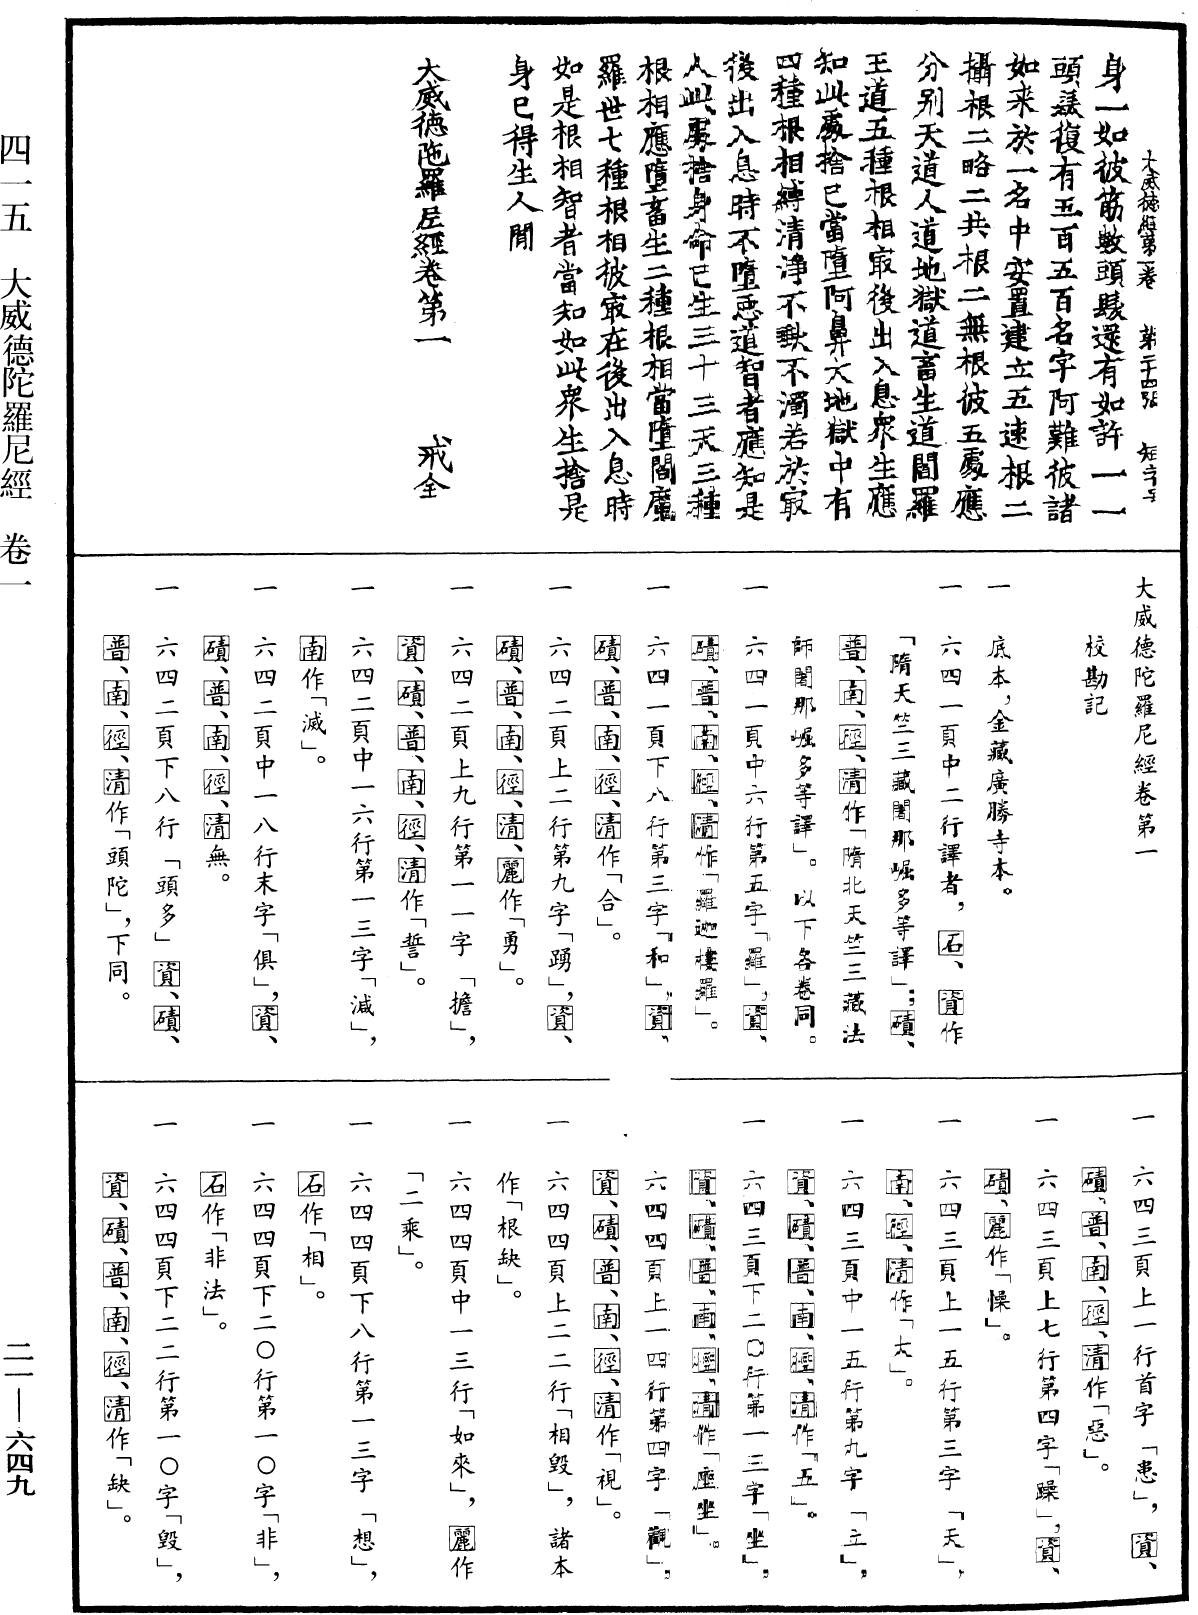 大威德經第一卷　第二十四張　短字号
身一如彼筋數頭髮還有如許一一
頭髮復有五百五百名字阿難彼諸
如来於一名中安置建立五速根二
攝根二略二共根二無根彼五處應
分別天道人道地獄道畜生道閻羅
王道五種根相冣後出入息眾生應
知此處捨已當墮阿鼻大地獄中有
四種根相縛清淨不動不濁若於冣
後出入息時不墮惡道智者應知是
人此處捨身命已生三十三天三種
根相應墮畜生二種根相當墮閻魔
羅世七種根相彼冣在後出入息時
如是根相智者當知如此眾生捨是
身已得生人間
大威德陁羅尼經卷第一　戒全
大威德陀羅尼經卷第一
校勘記
一　底本，金藏廣勝寺本。
一　六四一頁中二行譯者，石、資作
「隋天竺三藏闍那崛多等譯」；磧、
普、南、徑、清作「隋北天竺三藏法
師闍那崛多等譯」。以下各卷同。
一　六四一頁中六行第五字「羅」，資、
磧、普、南、徑、清作「羅迦樓羅」。
一　六四一頁下八行第三字「和」，資、
磧、普、南、徑、清作「合」。
一　六四二頁上二行第九字「踴」，資、
磧、普、南、徑、清、麗作「勇」。
一　六四二頁上九行第一一字「擔」，
資、磧、普、南、徑、清作「誓」。
一　六四二頁中一六行第一三字「減」，
南作「滅」。
一　六四二頁中一八行末字「俱」，資、
磧、普、南、徑、清無。
一　六四二頁下八行「頭多」資、磧、
普、南、徑、清作「頭陀」，下同。
一　六四三頁上一行首字「恚」，資、
磧、普、南、徑、清作「惡」。
一　六四三頁上七行第四字「躁」，資、
磧、麗作「懆」。
一　六四三頁上一五行第三字「天」，
南、徑、清作「大」。
一　六四三頁中一五行第九字「立」，
資、磧、普、南、徑、清作「五」。
一　六四三頁下二〇行第一三字「坐」，
資、磧、普、南、徑、清作「座坐」。
六四四頁上一四行第四字「觀」，
資、磧、普、南、徑、清作「視」。
一　六四四頁上二二行「相毀」，諸本
作「根缺」。
一　六四四頁中一三行「如來」，麗作
「二乘」。
一　六四四頁下八行第一三字「想」，
石作「相」。
一　六四四頁下二〇行第一〇字「非」，
石作「非法」。
一　六四四頁下二二行第一〇字「毀」，
資、磧、普、南、徑、清作「缺」。
四一五　大威德陀羅尼經　卷一
二一—六四九